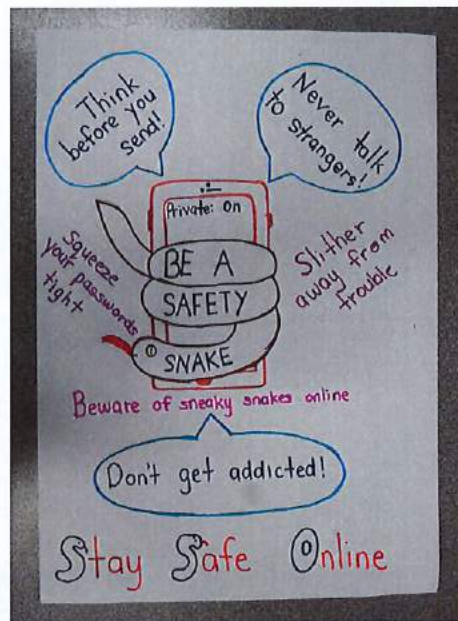 Think
before you
send!
Never talk
to strangers!
Private: On
Squeeze
your passwords
tight
BE A
SAFETY
SNAKE
Slither
away from
trouble
Beware of sneaky snakes online
Don't get addicted!
Stay Safe Online